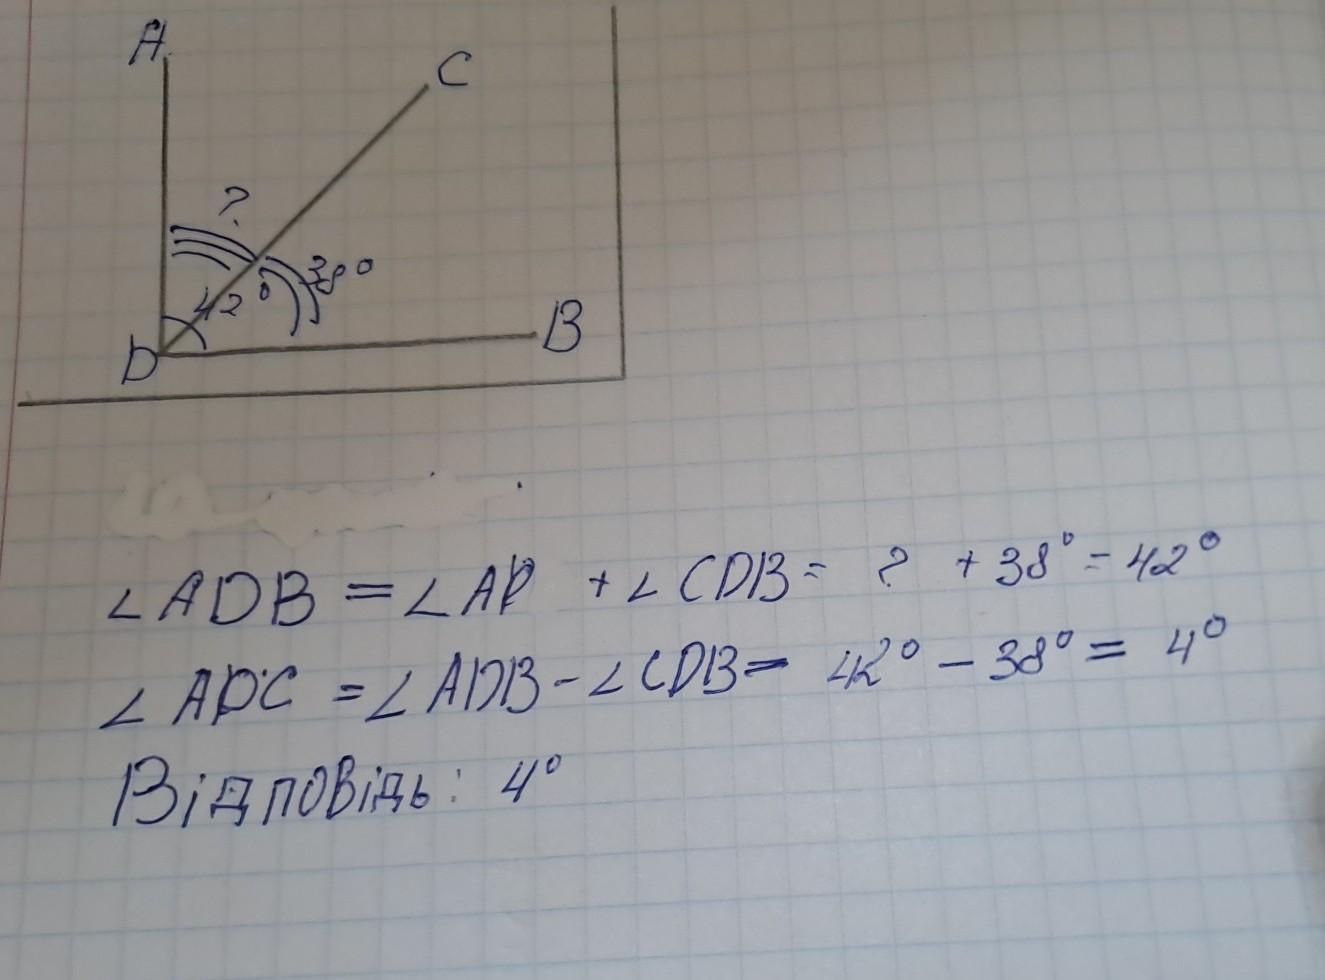 A
C
?
38°
42°
B
D
∠ADB = ∠AD + ∠CDB = ? + 38° = 42°
∠ADC = ∠ADB - ∠CDB = 42° - 38° = 4°
Відповідь: 4°